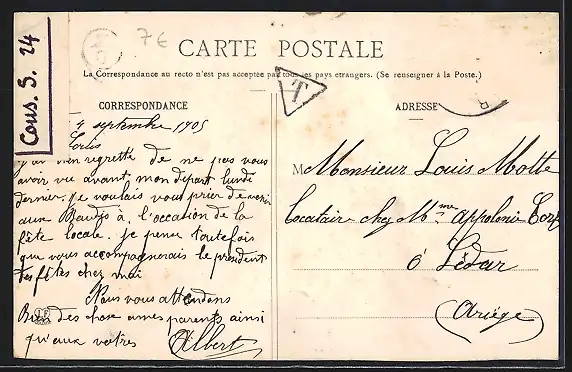 Cous. S. 24
7€
CARTE POSTALE
La Correspondance au recto n'est pas acceptée par tous les pays etrangers. (Se renseigner à la Poste.)
T
CORRESPONDANCE
4 septembre 1905
Louis
J'ai bien regretté de ne pas vous
avoir vu avant mon départ lundi
dernier. Je voulais vous prier de venir
aux à l'occation de la
fête locale. Je pense toutefois
que vous accompagnerais le président
fêtes chez moi
Nous vous attendons
Bien des chose a mes parents ainsi
qu'aux votres Albert
ADRESSE
M Monsieur Louis Motte
locataire chez Mme appolonie
à Lédar
(Ariége)